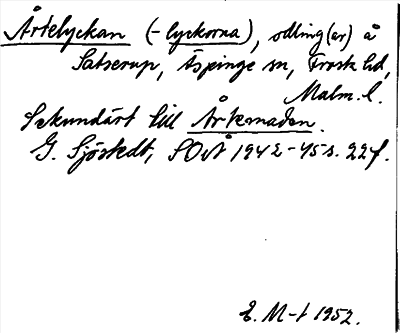 Årtelyckan (-lyckorna), odling(ar) å
Satserup, Äspinge sn, Frosta hd,
Malm. l.
Sekundärt till Årkemaden.
G. Sjöstedt, SOÅ 1942-45 s. 22f.
E. M-t 1952.